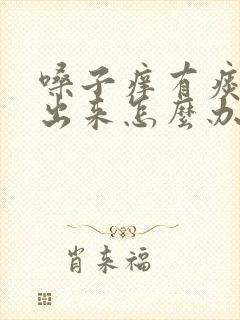 嗓子痒有痰
出来怎麼办
肖来福